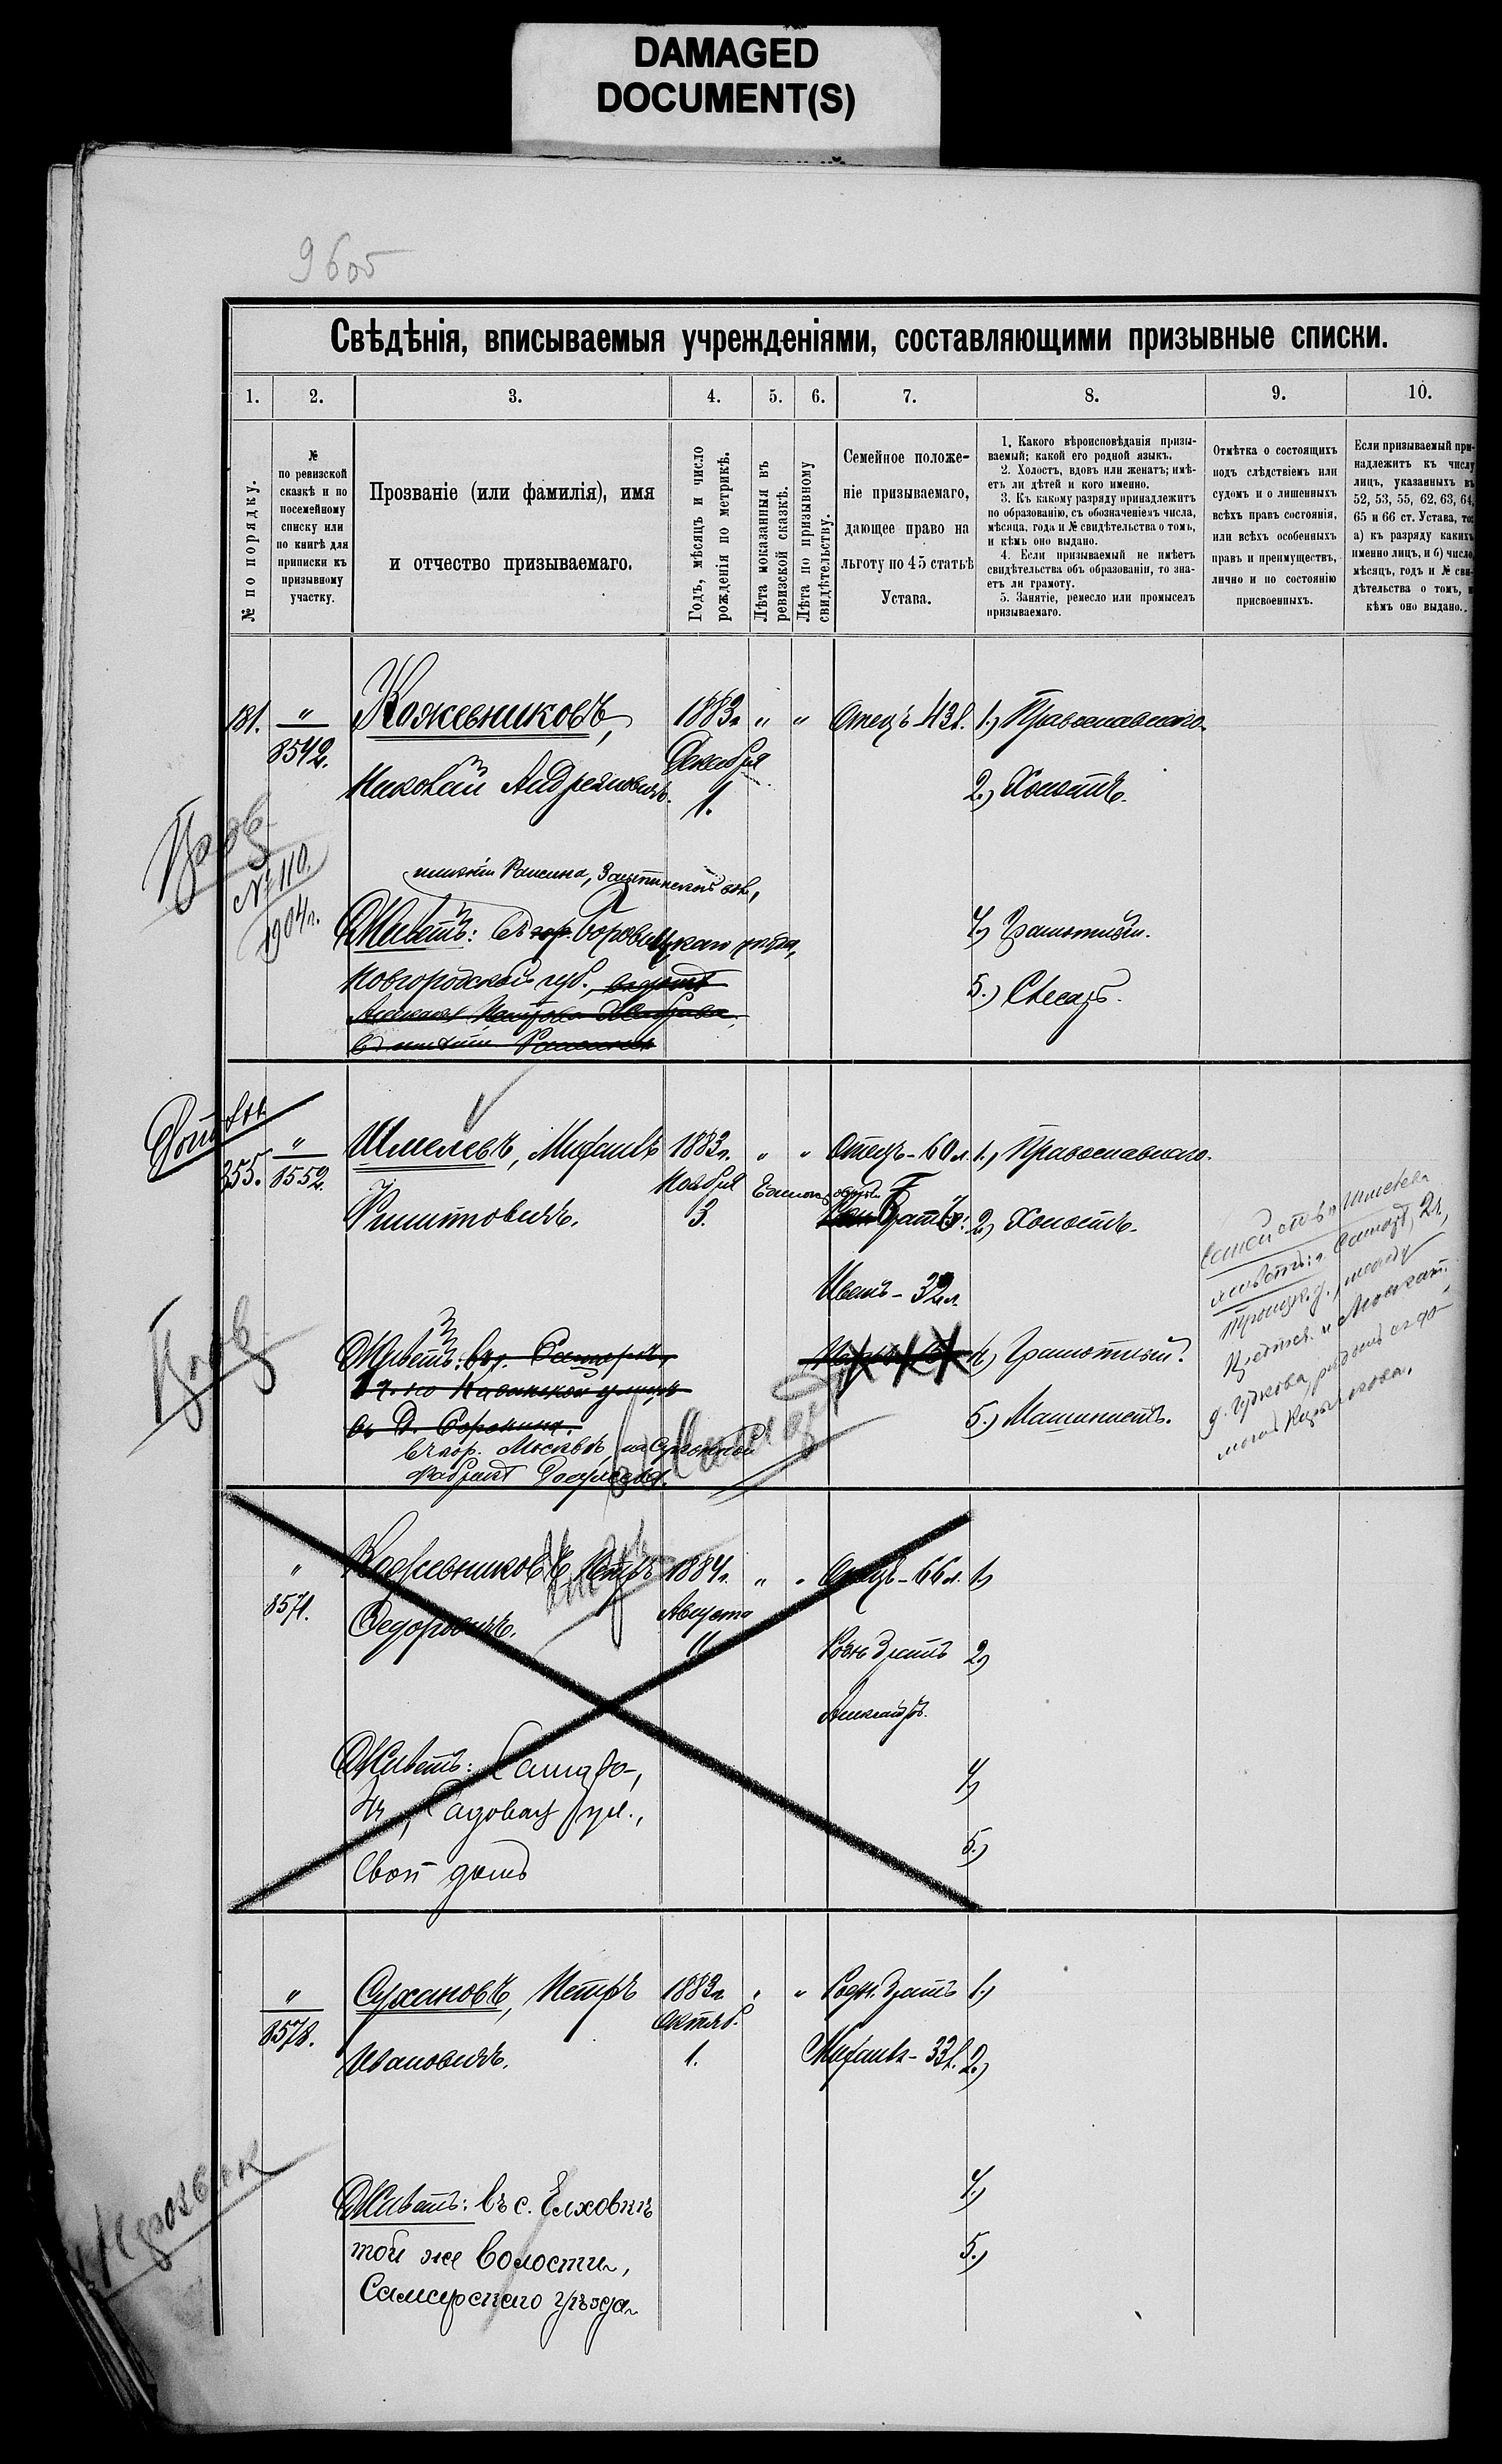 DAMAGED
DOCUMENT(S)
9605
Свѣдѣнія, вписываемыя учрежденіями, составляющими призывные списки.
1.
2.
3.
4.
5.
6.
7.
8.
9.
10.
№ по порядку.
№
по ревизской
сказкѣ и по
посемейному
списку или
по книгѣ для
приписки къ
призывному
участку.
Прозваніе (или фамилія), имя
и отчество призываемаго.
Годъ, мѣсяцъ и число
рожденія по метрикѣ.
Лѣта показанныя въ
ревизской сказкѣ.
Лѣта по призывному
свидѣтельству.
Семейное положе-
ніе призываемаго,
дающее право на
льготу по 45 статьѣ
Устава.
1. Какого вѣроисповѣданія призы-
ваемый; какой его родной языкъ.
2. Холостъ, вдовъ или женатъ; имѣ-
етъ ли дѣтей и кого именно.
3. Къ какому разряду принадлежитъ
по образованію, съ обозначеніемъ числа,
мѣсяца, года и № свидѣтельства о томъ,
и кѣмъ оно выдано.
4. Если призываемый не имѣетъ
свидѣтельства объ образованіи, то зна-
етъ ли грамоту.
5. Занятіе, ремесло или промыселъ
призываемаго.
Отмѣтка о состоящихъ
подъ слѣдствіемъ или
судомъ и о лишенныхъ
всѣхъ правъ состоянія,
или всѣхъ особенныхъ
правъ и преимуществъ,
лично и по состоянію
присвоенныхъ.
Если призываемый при-
надлежитъ къ числу
лицъ, указанныхъ въ
52, 53, 55, 62, 63, 64,
65 и 66 ст. Устава, то:
а) къ разряду какихъ
именно лицъ, и б) число,
мѣсяцъ, годъ и № сви-
дѣтельства о томъ, и
кѣмъ оно выдано.
181. " Кожевниковъ, 1883г. " " Отецъ 43л. 1.) Православнаго.
8542. Декабря
Николай Андреяновичъ. 1. 2.) Холостъ.
№ 110.
1904г.
Живетъ: Боровицкаго уѣзда, 4.) Грамотный.
Новгородской губ., 5.) Слесарь.
355. " Шмелевъ, Михаилъ 1883г. " " Отецъ - 60 л. 1.) Православнаго.
8552. Ноября
Филипповичъ. 3. Братья: 2.) Холостъ.
Иванъ - 32л.
Живетъ: въ г. Самарѣ, 4.) Грамотный.
по Казанской улицѣ
въ д. Сорокина. 5.) Машинистъ.
въ гор. Москвѣ на Суконной
фабрикѣ
Семейство Шмелева
живетъ: г. Самара, 2ч,
Троицк. у., между
" Кожевниковъ Петръ 1884г. " " Отецъ - 66 л. 1.)
8571. Августа
Федоровичъ. 11 Родн. Братъ 2.)
Александръ.
Живетъ: Самара, 4.)
Садовая ул., 5.)
свой домъ
" Сухановъ, Петръ 1883г. " " Родн. Братъ 1.)
8578. Октяб.
Ивановичъ. 1. Михаилъ - 33л. 2.)
Живетъ: въ с. Елховкѣ 4.)
той же волости, 5.)
Самарскаго уѣзда